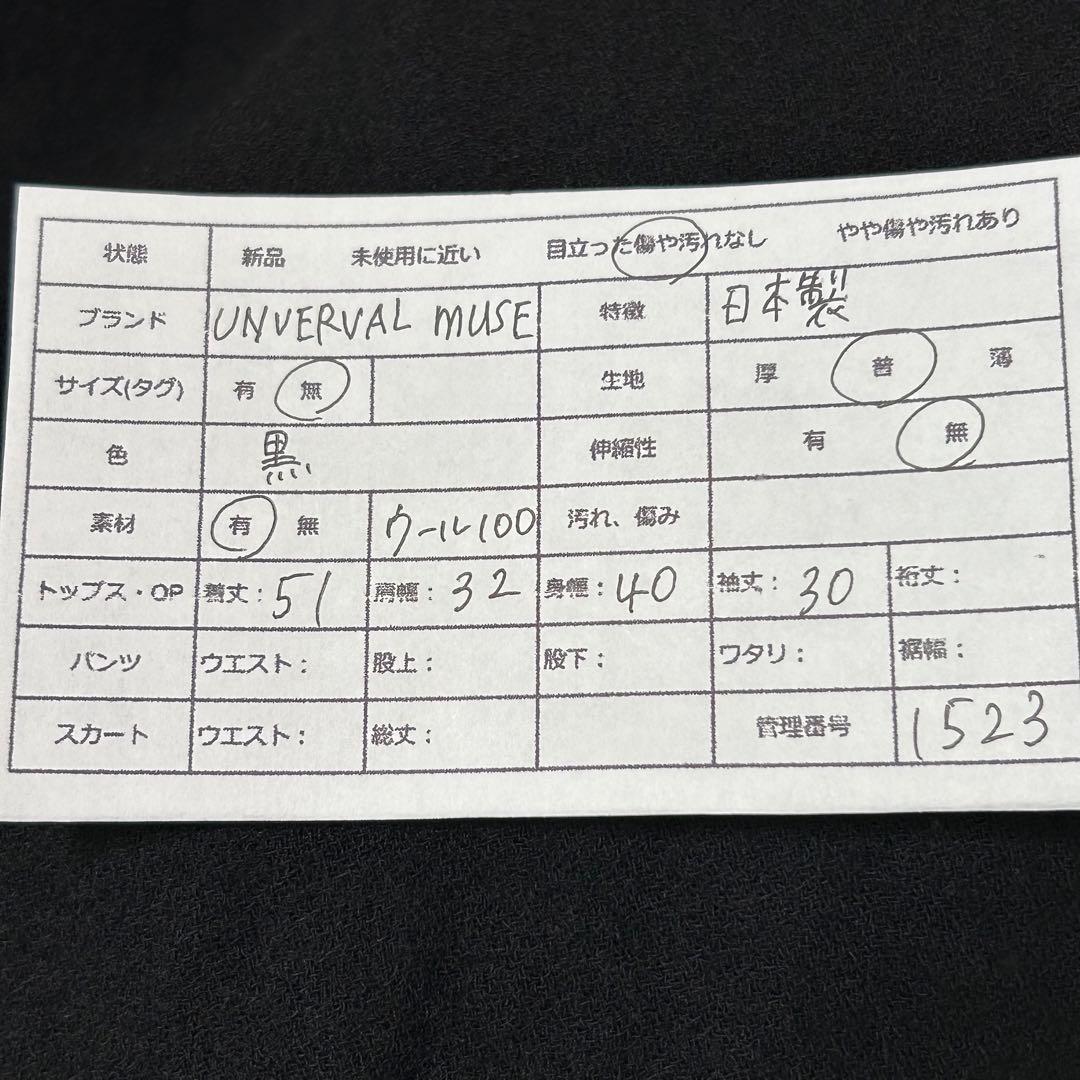 状態 新品 未使用に近い 目立った傷や汚れなし やや傷や汚れあり
ブランド UNVERVAL MUSE 特徴 日本製
サイズ(タグ) 有 無 生地 厚 普 薄
色 黒 伸縮性 有 無
素材 有 無 ウール100 汚れ、傷み
トップス・OP 着丈: 51 肩幅: 32 身幅: 40 袖丈: 30 裄丈:
パンツ ウエスト: 股上: 股下: ワタリ: 裾幅:
スカート ウエスト: 総丈: 管理番号 1523